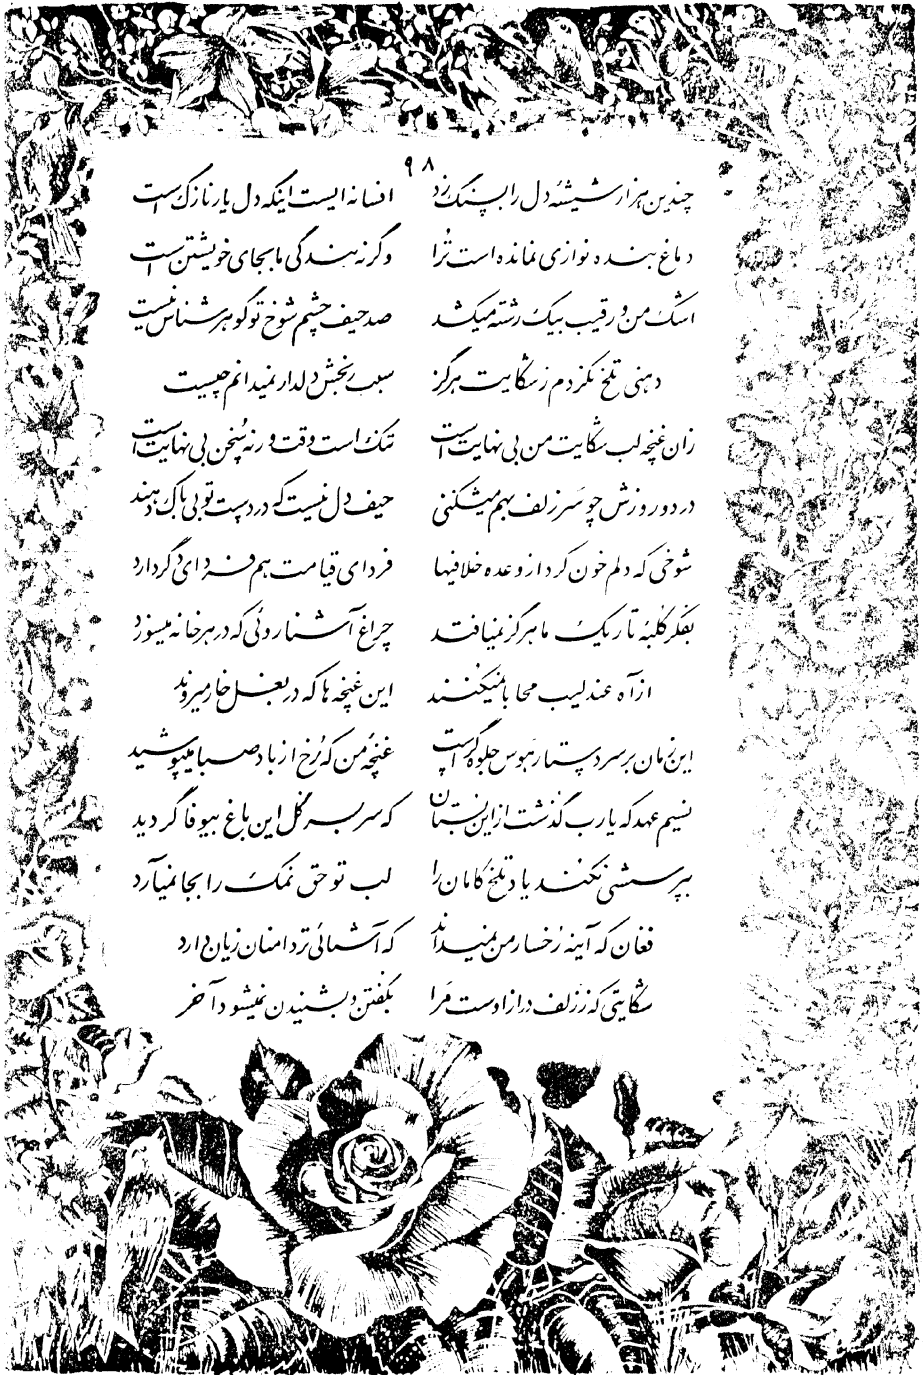 ۹۸
چندین هزار شیشهٔ دل را بسنگ زد افسانه ایست اینکه دل یار نازک است
دماغ بنده نوازی نمانده است ترا وگرنه بندگی ما بجای خویشتن است
اشک من و رقیب بیک رشته میکشد صد حیف چشم شوخ تو گوهرشناس نیست
دهنی تلخ نکردم ز شکایت هرگز سبب رنجش دلدار نمیدانم چیست
زان غنچه لب شکایت من بی نهایت است تنک است وقت ورنه سخن بی نهایت است
در دور زش چو سر زلف بهم میشکنی حیف دل نیست که در دست تو بی باک دهند
شوخی که دلم خون کرد از وعده خلافیها فردای قیامت هم فردای دگر دارد
بفکر کلبهٔ تاریک ما هرگز نمیافتد چراغ آشنا روئی که در هر خانه میسوزد
از آه عندلیب محابا نمیکنند این غنچه ها که در بغل خار میروند
این زمان بر سر دستار هوس جلوه گر است غنچهٔ من که رخ از باد صبا میپوشید
نسیم عهد که یارب گذشت از این بستان که سربسر گل این باغ بیوفا گردید
بپرسشی نکند یاد تلخ کامان را لب تو حق نمک را بجا نمیآرد
فغان که آینه رخسار من نمیداند که آشنائی تردامنان زیان دارد
شکایتی که ز زلف دراز اوست مرا بگفتن و بشنیدن نمیشود آخر